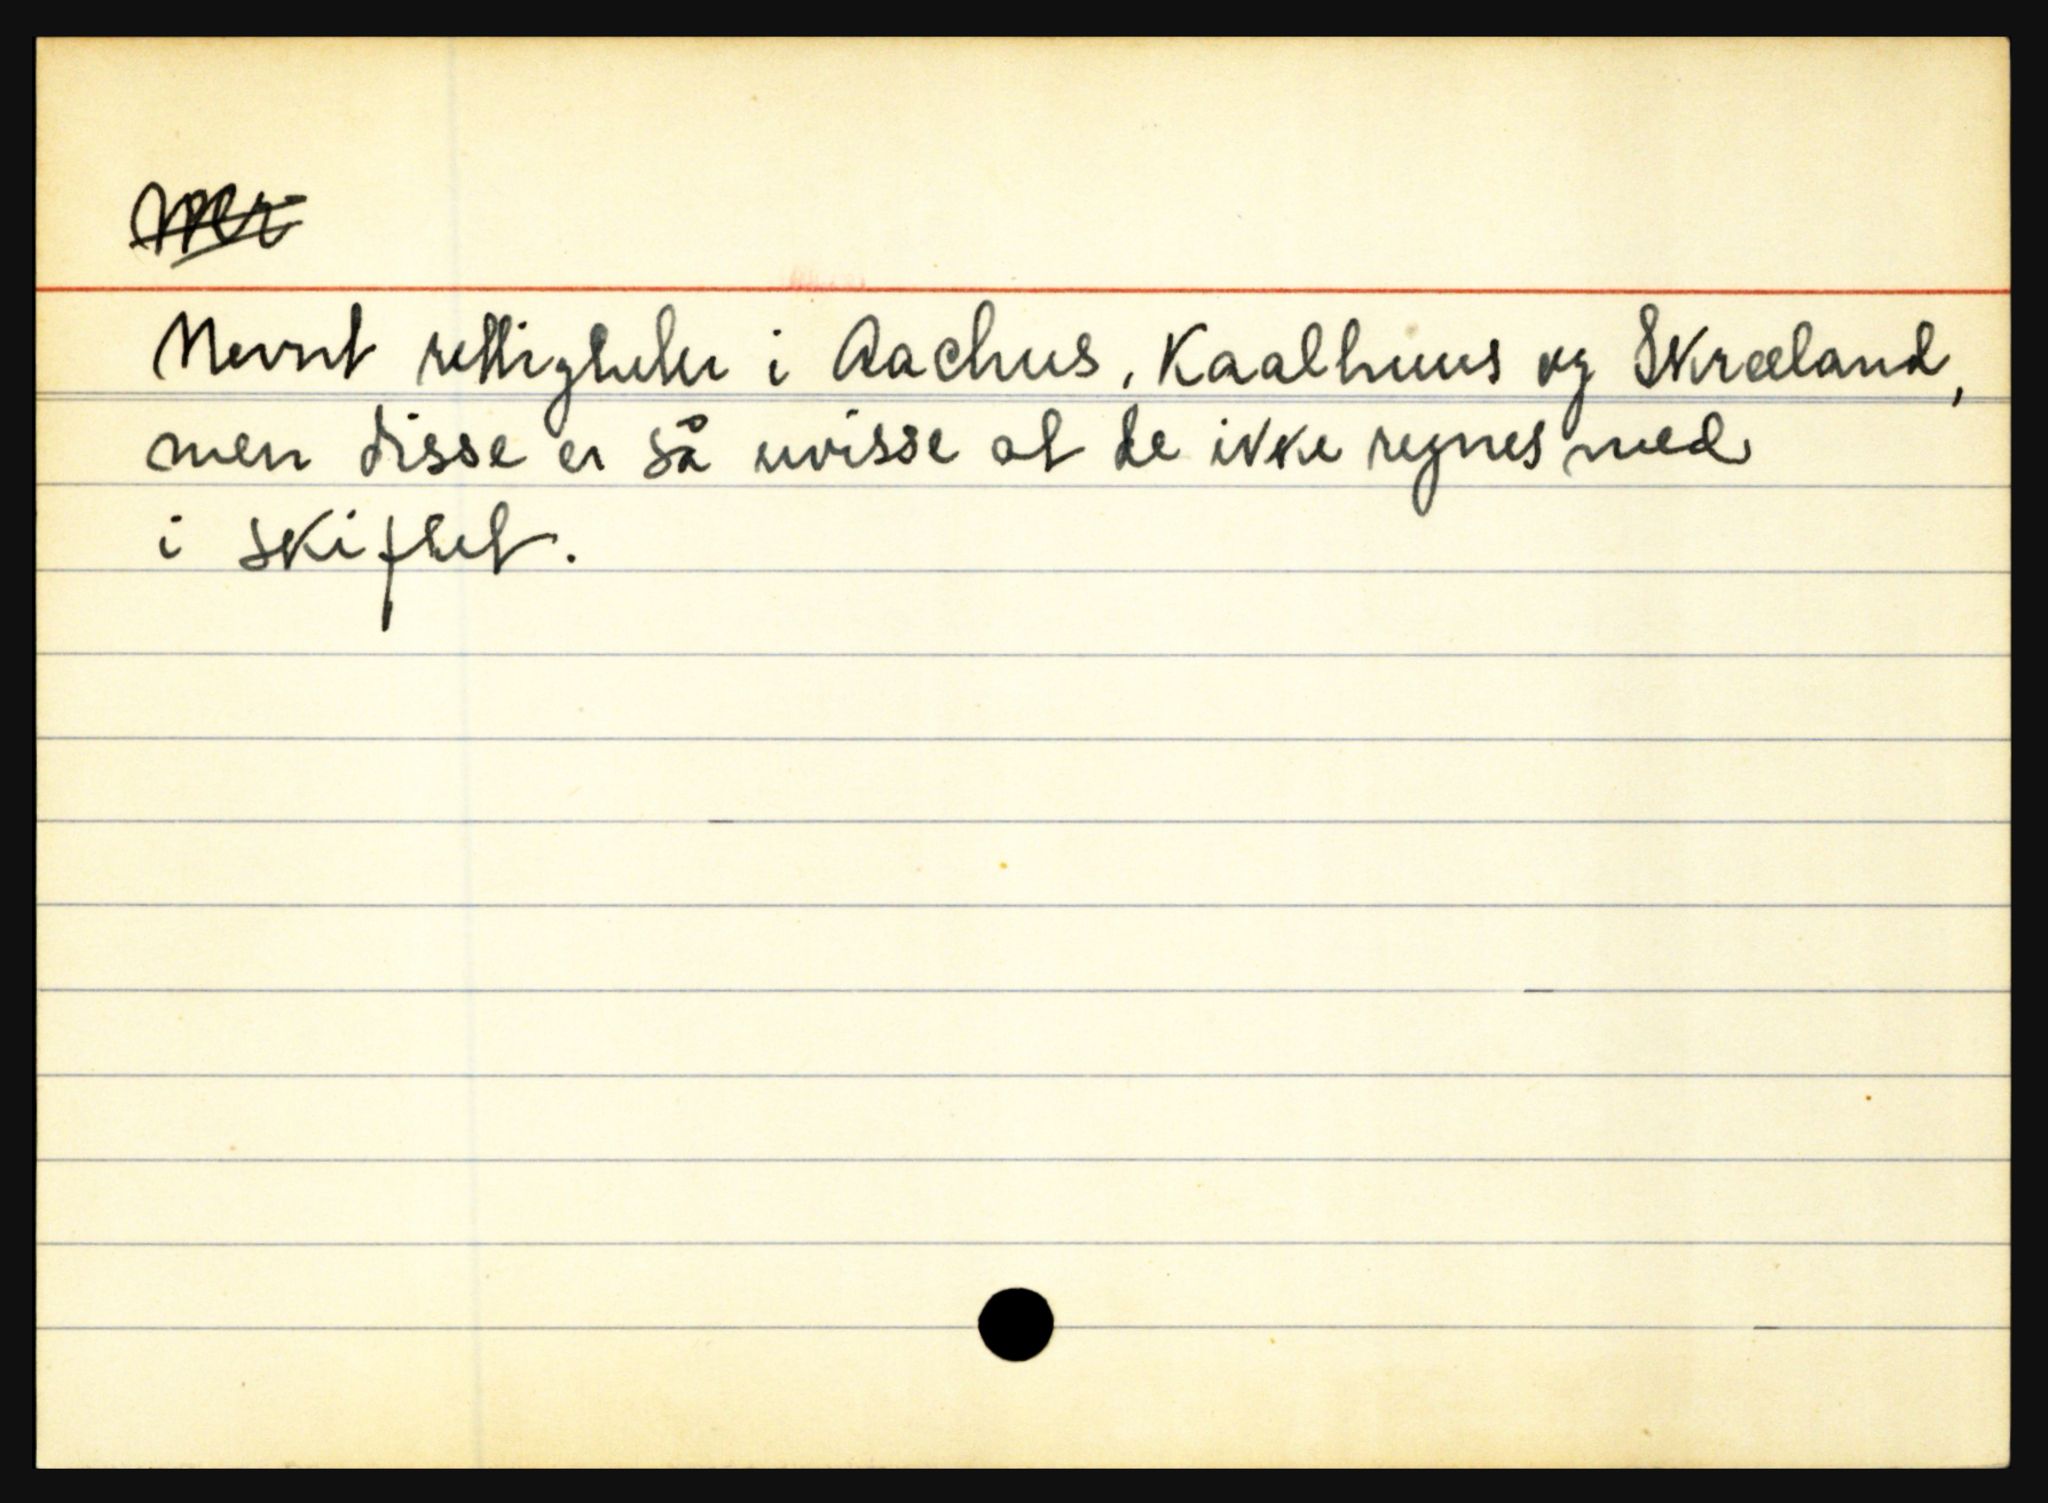 Nevnt rettigheter i Aachus, Kaalhuus og Skræland,
men disse er så uvisse at de ikke regnes med
i skiftet.